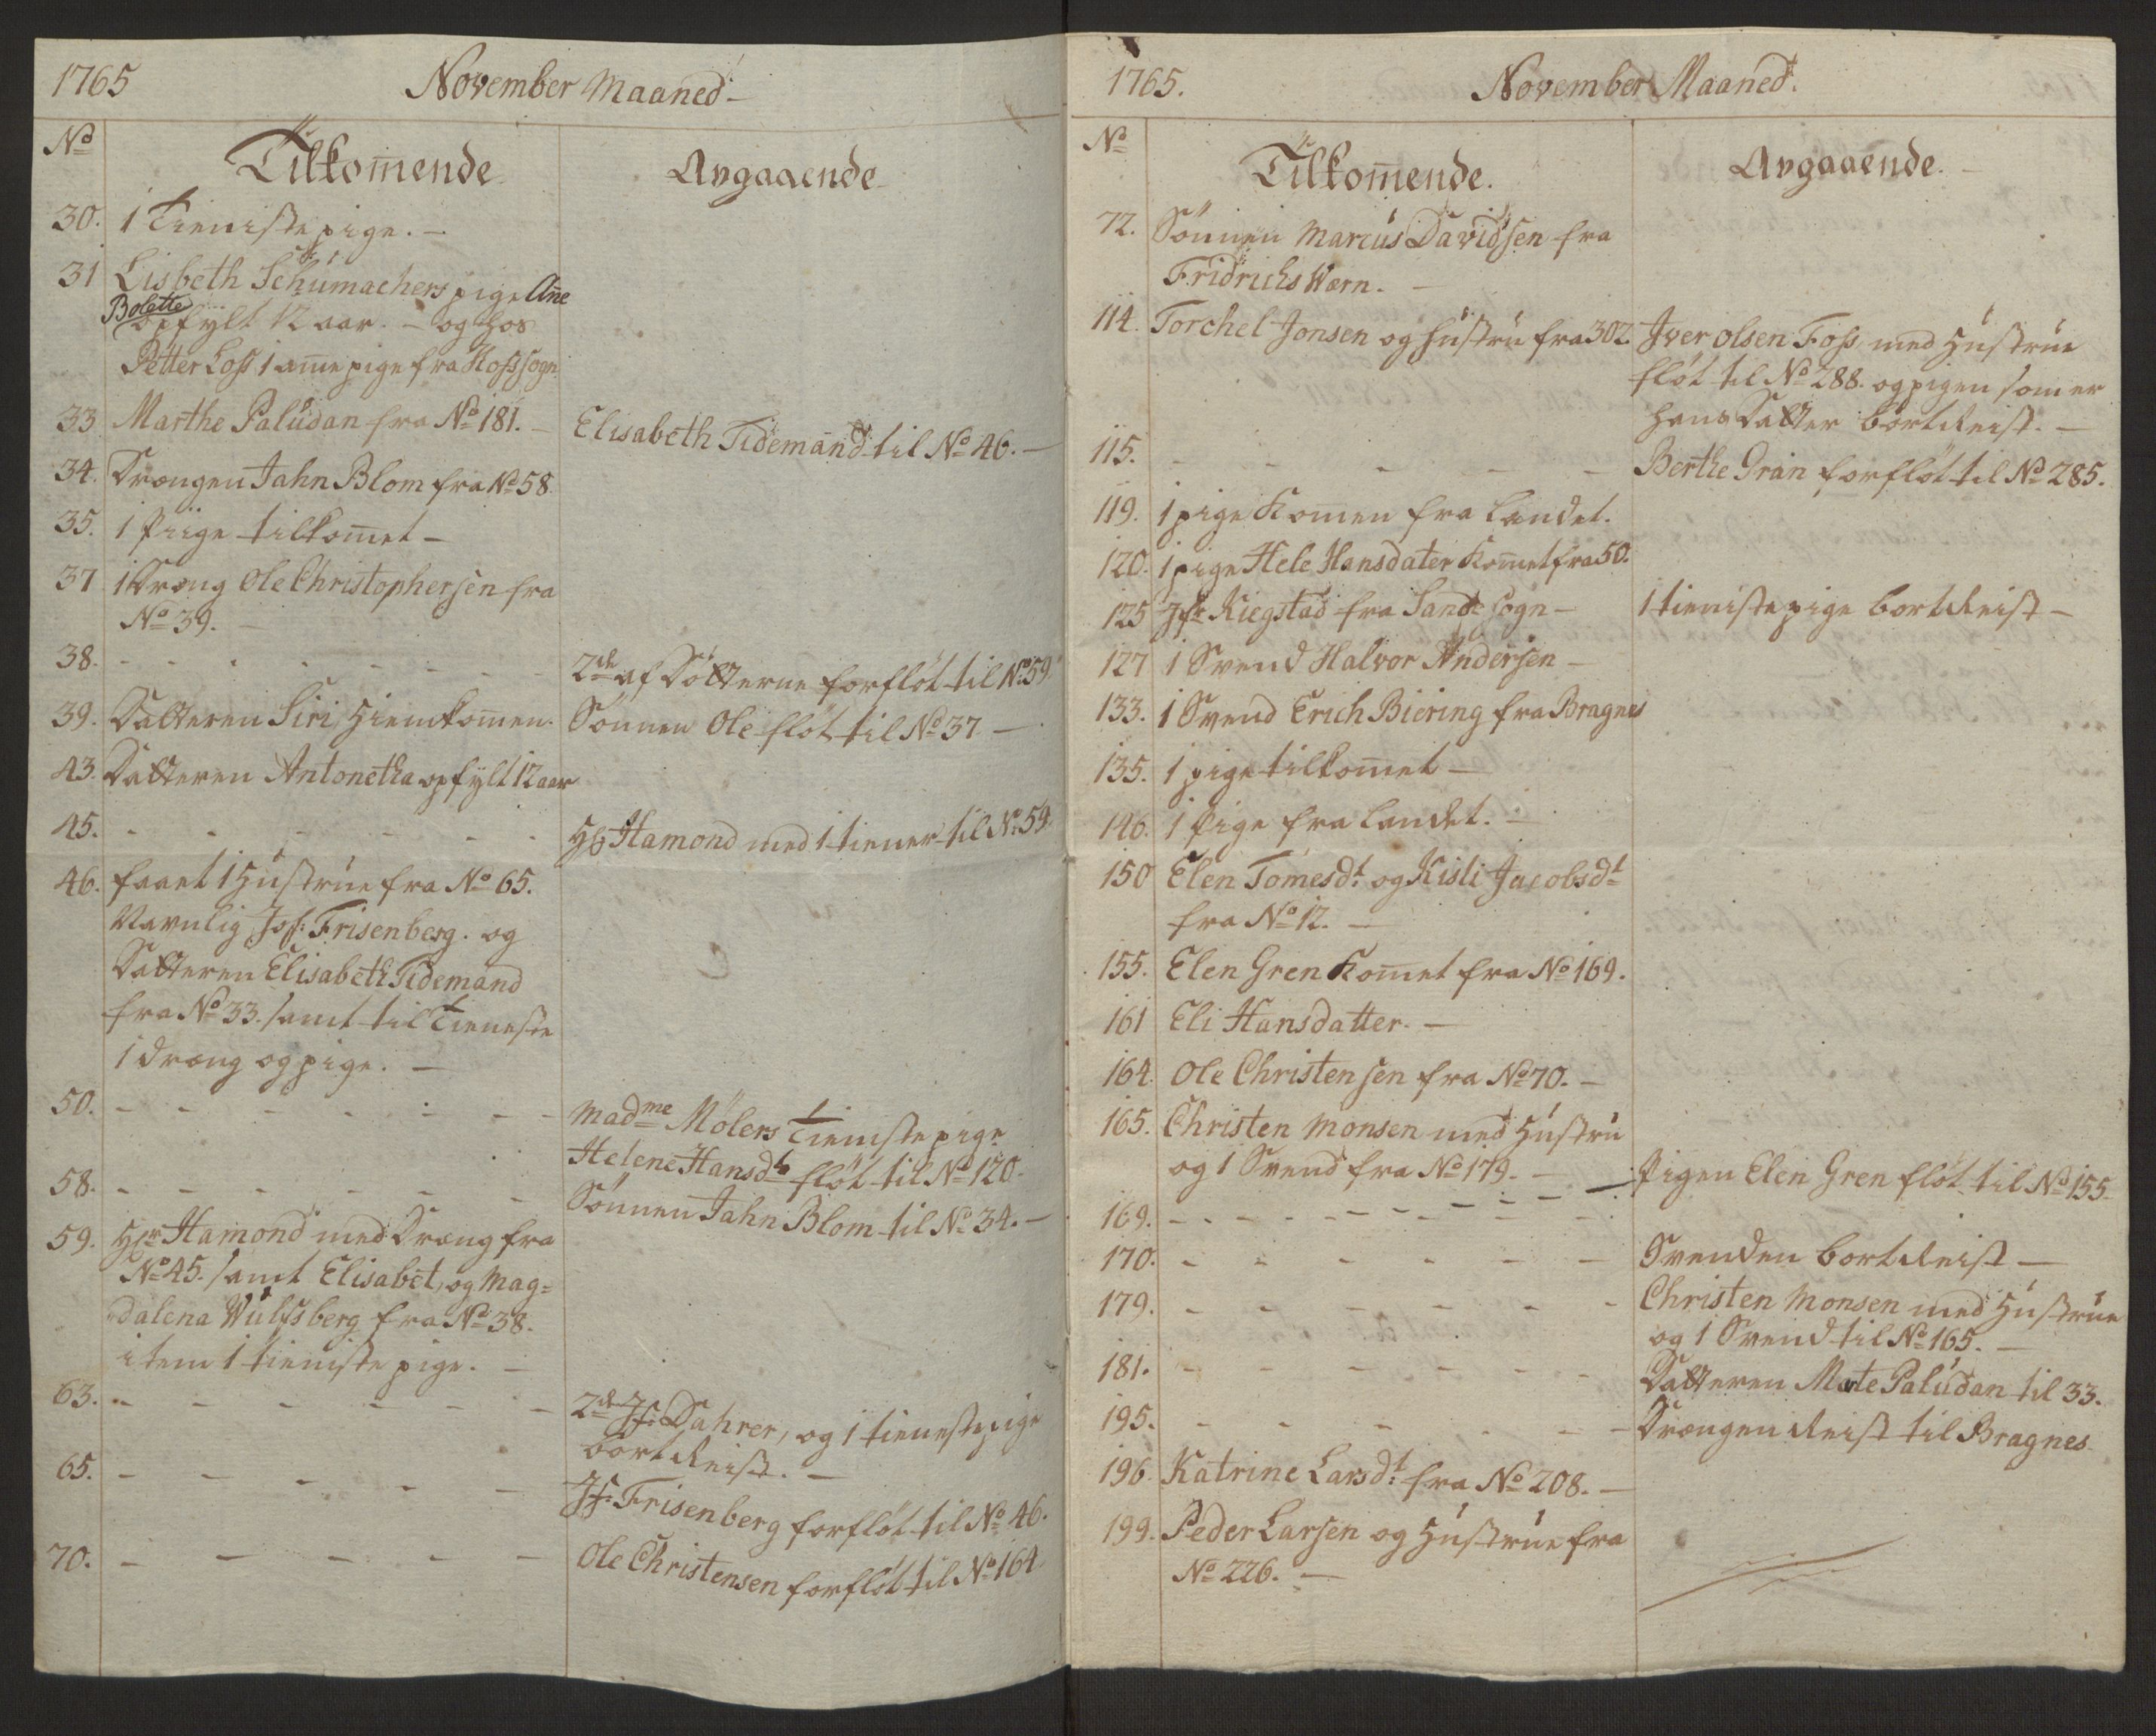 1765
November Maaned
No
Tilkommende
Avgaaende
30. 1 Tieniste pige.
31 Lisbeth Schumachers pige Ane
Bolette
opfylt 12 aar. - og hos
Petter Loss 1 amme pige fra Hofs sogn
33 Marthe Paludan fra No 181. - Elisabeth Tidemand til No 46. -
34. Drængen Jahn Blom fra No 58
35. 1 Piige tilkommet -
37 1 Dræng Ole Christophersen fra
No 39. -
38. - - - - - - 2de af Døtterne forfløt til No 59
39. Datteren Siri Hiemkommen. Sønnen Ole fløt til No 37 -
43. Datteren Antonetha opfylt 12 aar
45. - - - - - - Hr Hamond med 1 tiener til No 59
46. faaet 1 Hustrue fra No 65.
Navnlig Jof: Frisenberg. og
Datteren Elisabeth Tidemand
fra No 33. samt til Tieneste
1 dræng og pige. -
50. - - - - - - Madme Mølers Tieniste pige
Helene Hansdtr fløt til No 120.
58. - - - - - - Sønnen Jahn Blom til No 34. -
59. Hr Hamond med Dræng fra
No 45. samt Elisabet, og Mag=
dalena Wulfsberg fra No 38.
item 1 tieniste pige. -
63. - - - - - - 2de Jf: Dahrer, og 1 tieneste pige
bortreist. -
65. - - - - - Jf: Frisenberg forfløt til No 46.
70. - - - - - Ole Christensen forfløt til No 164
1765.
November Maaned.
No
Tilkommende.
Avgaaende.
72. Sønnen Marcus Davidsen fra
Fridrichs Wærn. -
114. Torchel Jonsen og Hustru fra 302 Iver olsen Foss med Hustrue
fløt til No 288. og pigen som er
hans Datter bortreist. -
115. - - - - - Berthe Gran forfløt til No 285.
119. 1 pige Komen fra Landet.
120. 1 pige Hele Hansdater Kommet fra 50.
125 Jfr Kiegstad fra Sande sogn - 1 tieniste pige bortreist -
127 1 Svend Halvor Andersen -
133. 1 Svend Erich Biering fra Bragnes
135. 1 pige tilkommet -
146. 1 Pige fra Landet. -
150 Elen Tomesdt. og Kisti Jacobsdt
fra No 12. -
155. Elen Gren Kommet fra No 169.
161 Eli Hansdatter. -
164. Ole Christensen fra No 70. -
165. Christen Monsen med Hustru
og 1 Svend fra No 179. -
169. - - - - - - Pigen Elen Gren fløt til No 155.
170. - - - - - - Svenden bortreist -
179. - - - - - - Christen Monsen med Hustrue
og 1 Svend til No 165. -
181. - - - - - - Datteren Mate Paludan til 33.
195. - - - - - - Drængen reist til Bragnes
196. Katrine Larsdt: fra No 208. -
199. Peder Larsen og Hustrue fra
No 226. -